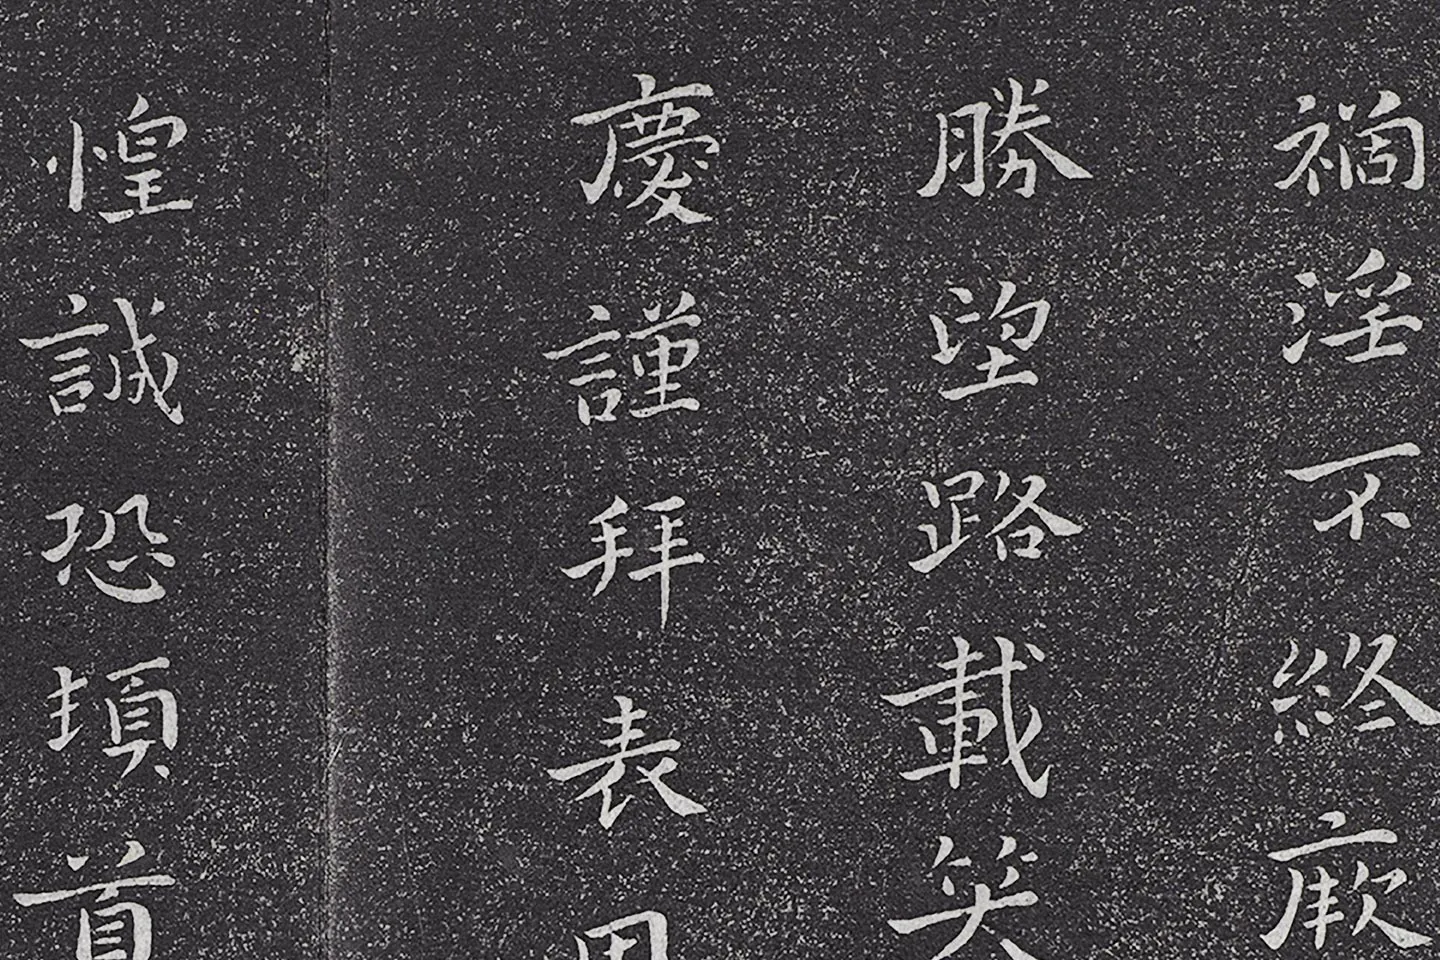 禍淫不終厥
勝望路載笑
慶謹拜表因
惶誠恐頓首